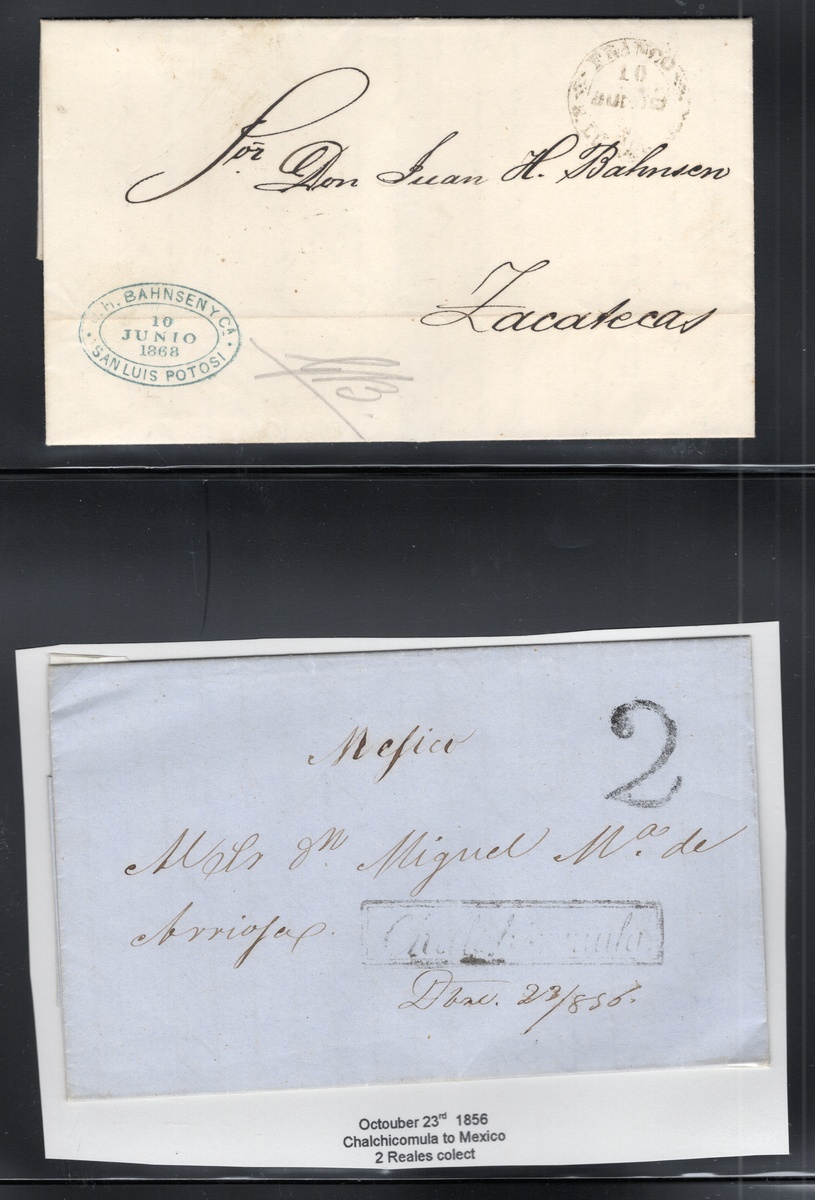 FRANCO
10
JUNIO
Sör Don Juan H. Bahnsen
Zacatecas
J. H. BAHNSEN Y CA
10
JUNIO
1868
SAN LUIS POTOSI
2
Mejico
Al Sr Dn Miguel Ma. de
Arrioja.
Chalchicomula
Dbre. 23/856.
Octouber 23rd 1856
Chalchicomula to Mexico
2 Reales colect